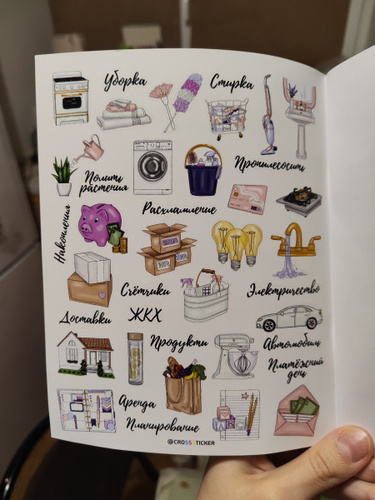 Уборка
Стирка
Пропылесосить
Полить
растения
Расхламление
Накопления
Счётчики
Электричество
Доставки
ЖКХ
Продукты
Автомобиль
Платёжный
день
Аренда
Планирование
@CROSSSTICKER